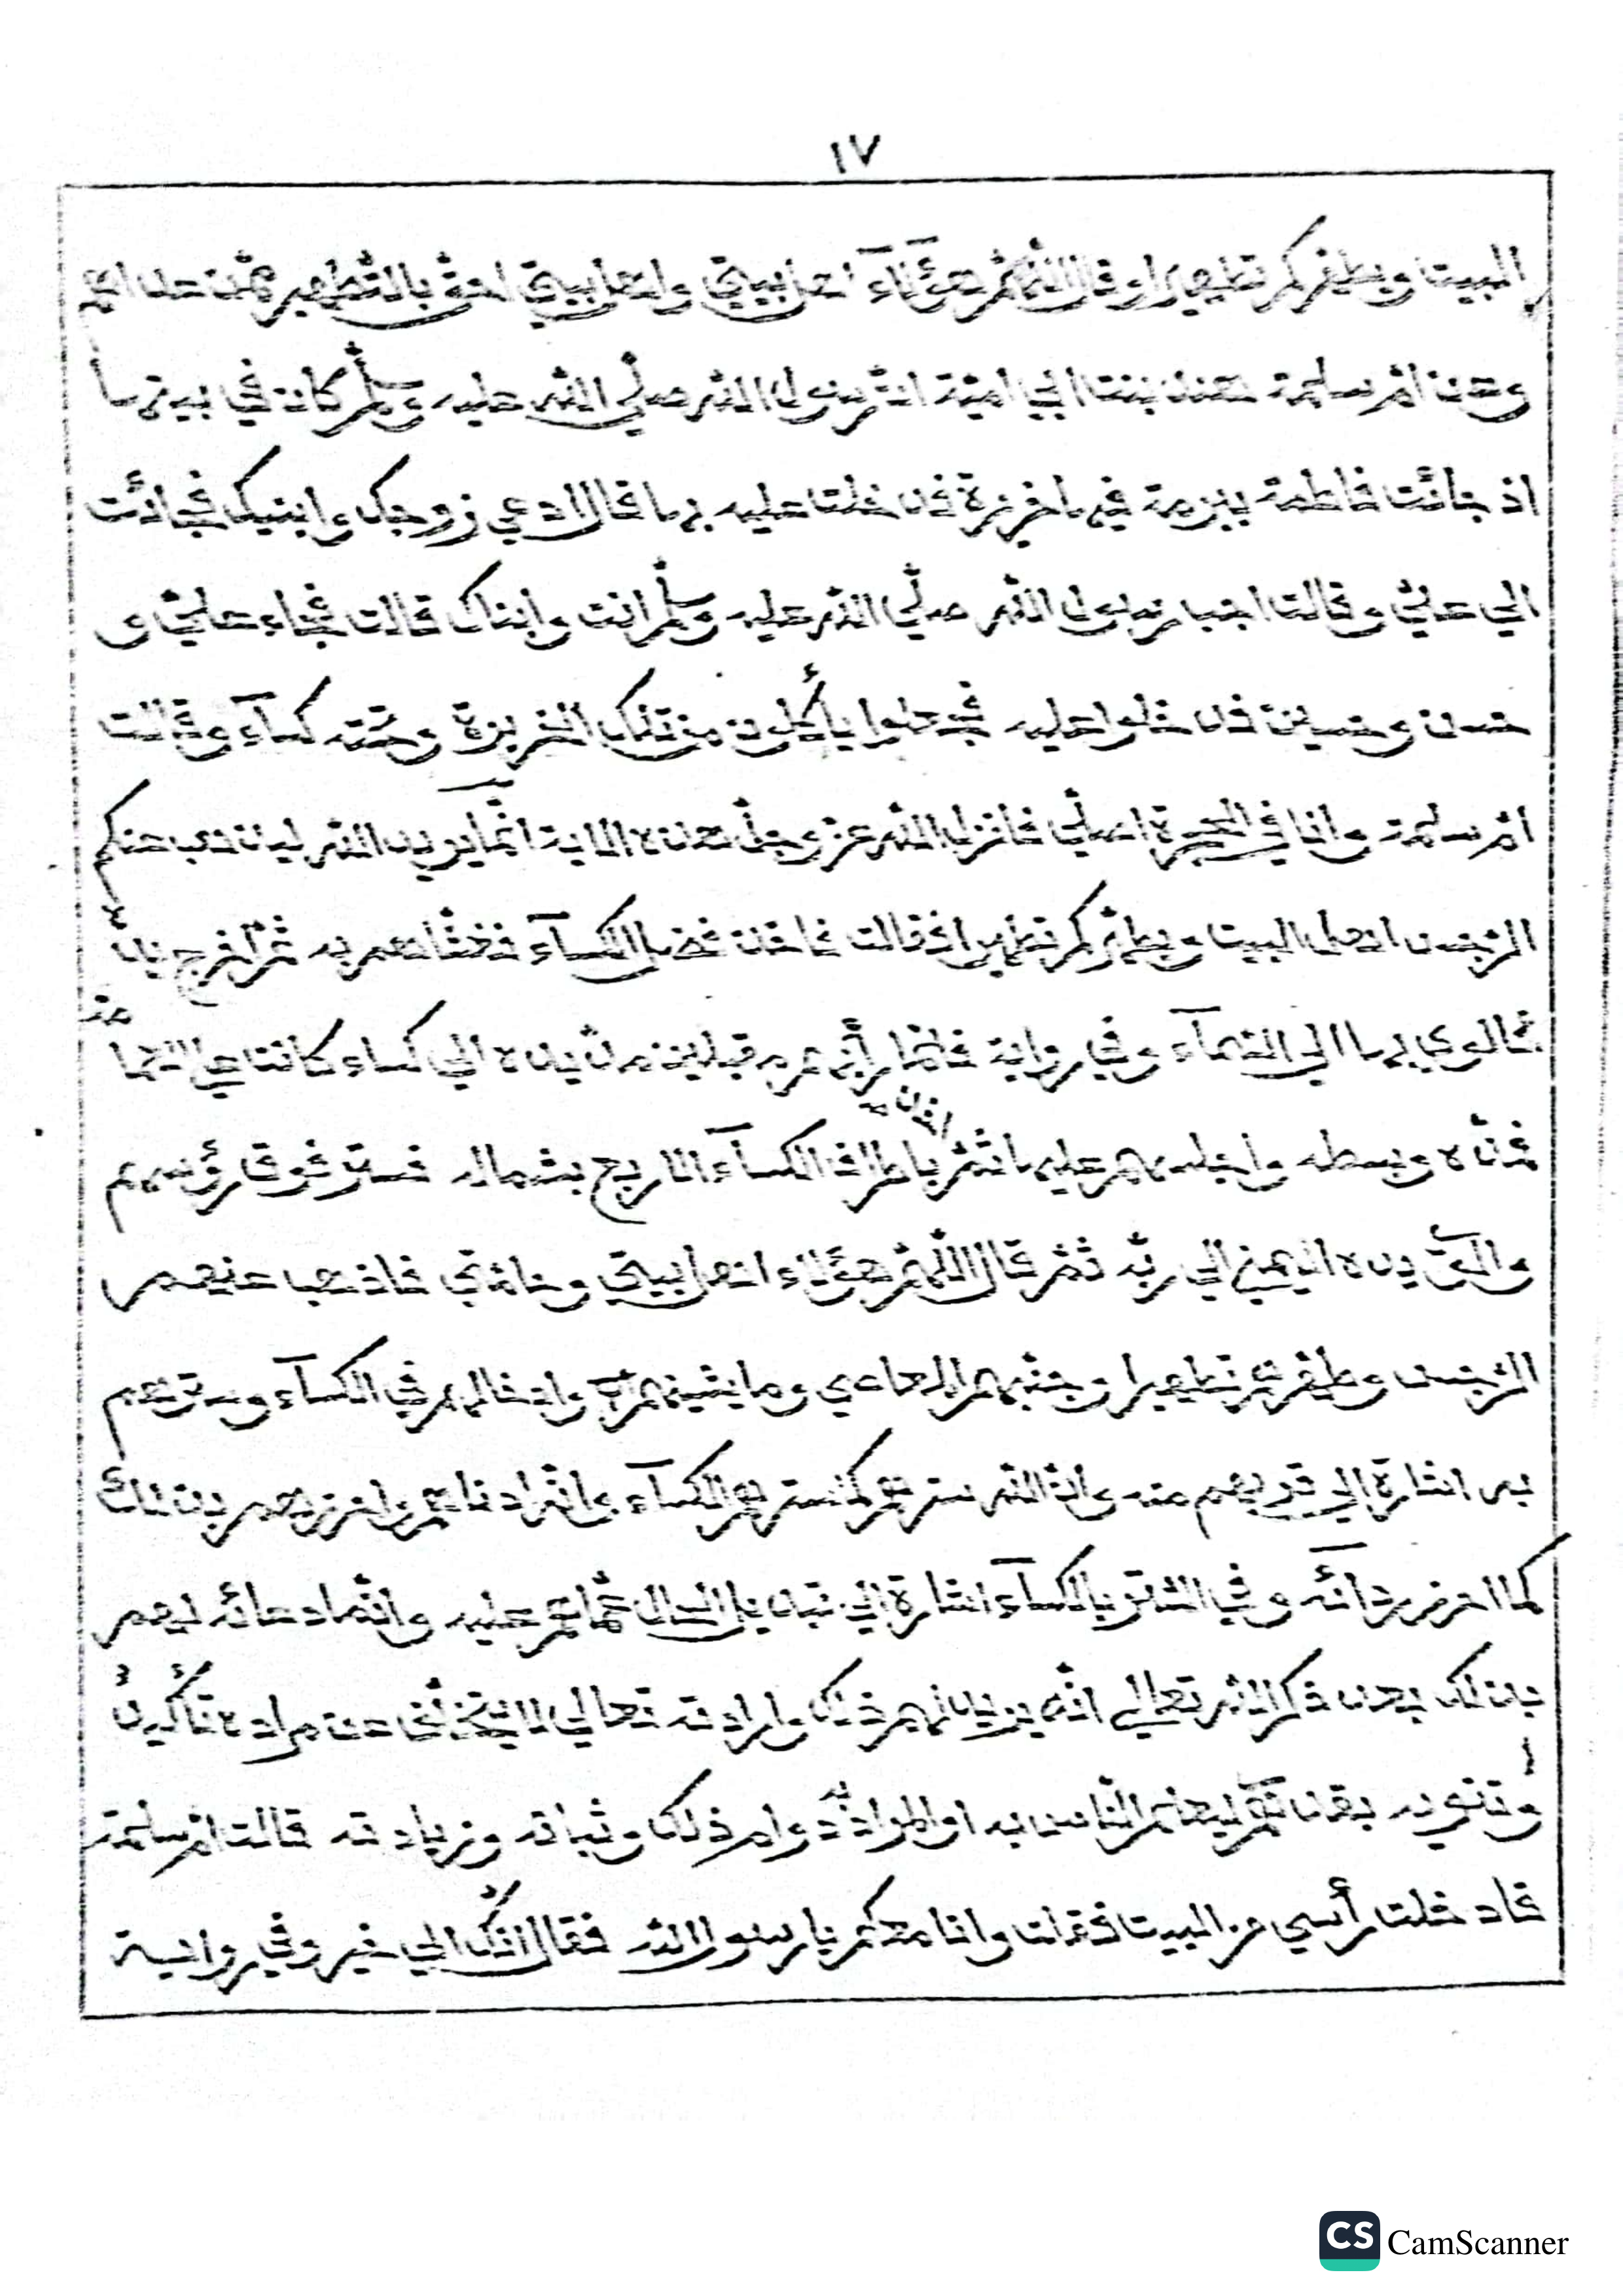 ١٧
البيت ويطهركم تطهيرا وقال اللهم هؤلآء اهل بيتي واهل بيتي احق بالتطهير ممن عداهم
وعن ام سلمة هند بنت ابي امية ان رسول الله صلي الله عليه وسلم كان في بيتها
اذ جائت فاطمة ببرمة فيها خزيرة فدخلت عليه بها قال ادعي زوجك وابنيك فجائت
الي علي وقالت اجب رسول الله صلي الله عليه وسلم انت وابناك قالت فجاء علي و
حسن وحسين فدخلوا عليه فجعلوا يأكلون من تلك الخزيرة وتحته كسآء وقالت
ام سلمة وانا في الحجرة اصلي فانزل الله عز وجل هذه الاية انما يريد الله ليذهب عنكم
الرجس اهل البيت ويطهركم تطهيرا قالت فاخذ فضل الكسآء فغشاهم به ثم اخرج يده
فالوي بها الي السمآء وفي رواية فلما رأهم مقبلين مد يده الي كساء كانت علي
فمده وبسطه واجلسهم عليه ثم اخذ باطراف الكسآء الاربع بشماله فستر فوق رؤسهم
والتي يده اليمني الي ربه ثم قال اللهم هؤلاء اهل بيتي وخاصتي فاذهب عنهم
الرجس وطهرهم تطهيرا وجنبهم المعاصي وما يشينهم وادخالهم في الكسآء وسترهم
به اشارة الي قربهم منه وان الله سترهم كما سترهم الكسآء وافرادهم واعزهم بذلك
كما اعزم ردآئه وفي الستر بالكسآء اشارة الي تبديل الحال عما هم عليه وانما دعائه لهم
بذلك بعد ذكر الله تعالي انه يريد لهم ذلك وارادته تعالي لا يتخلف عن مراده تأكيدا
وتنويه بقدرهم ليعلم الناس به او المراد به دوام ذلك وثباته وزيادته قالت ام سلمة
فادخلت رأسي من البيت فقلت وانا معكم يا رسول الله فقال انك الي خير وفي رواية
CS CamScanner